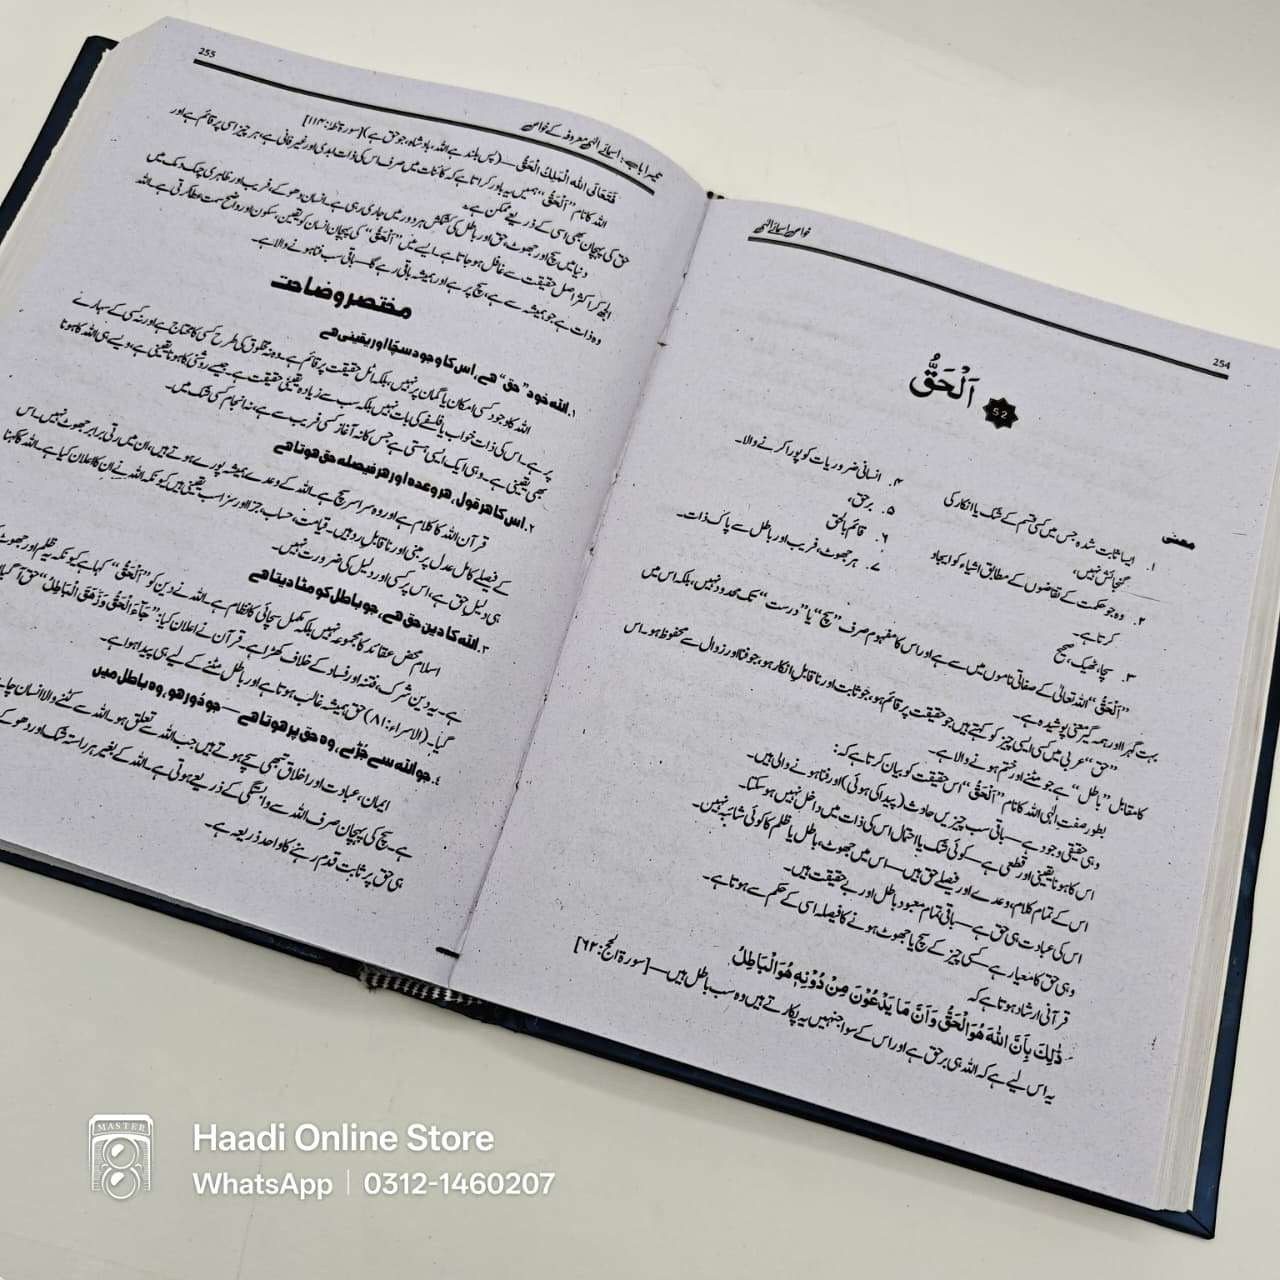 254
خواصِ اسماءِ الٰہی
52
اَلْحَقُّ
معنی
۱. ایسا ثابت شدہ جس میں کسی قسم کے شک یا انکار کی
گنجائش نہیں،
۲. وہ جو حکمت کے تقاضوں کے مطابق اشیاء کو ایجاد
کرتا ہے۔
۳. سچا، ٹھیک، صحیح
۴. انسانی ضروریات کو پورا کرنے والا۔
۵. برحق،
۶. قائم بالحق
۷. ہر جھوٹ، فریب اور باطل سے پاک ذات۔
”اَلْحَقُّ“ اللہ تعالیٰ کے صفاتی ناموں میں سے ہے اور اس کا مفہوم صرف ”سچ“ یا ”درست“ تک محدود نہیں، بلکہ اس میں
بہت گہرا اور ہمہ گیر معنی پوشیدہ ہے۔
”حق“ عربی میں کسی ایسی چیز کو کہتے ہیں جو حقیقت پر قائم ہو، جو ثابت اور ناقابلِ انکار ہو، جو فنا اور زوال سے محفوظ ہو۔ اس
کا مقابل ”باطل“ ہے جو مٹنے اور ختم ہونے والا ہے۔
بطور صفتِ الٰہی اللہ کا نام ”اَلْحَقُّ“ اس حقیقت کو بیان کرتا ہے کہ:
وہی حقیقی وجود ہے — باقی سب چیزیں حادث (پیدا کی ہوئی) اور فنا ہونے والی ہیں۔
اس کا ہونا یقینی اور قطعی ہے — کوئی شک یا احتمال اس کی ذات میں داخل نہیں ہو سکتا۔
اس کے تمام کلام، وعدے اور فیصلے حق ہیں — اس میں جھوٹ، باطل یا ظلم کا کوئی شائبہ نہیں۔
اس کی عبادت ہی حق ہے — باقی تمام معبود باطل اور بے حقیقت ہیں۔
وہی حق کا معیار ہے — کسی چیز کے سچ یا جھوٹ ہونے کا فیصلہ اسی کے حکم سے ہوتا ہے۔
قرآنی ارشاد ہوتا ہے کہ
ذٰلِكَ بِاَنَّ اللّٰهَ هُوَ الْحَقُّ وَاَنَّ مَا يَدْعُوْنَ مِنْ دُوْنِهٖ هُوَ الْبَاطِلُ
یہ اس لیے ہے کہ اللہ ہی برحق ہے اور اس کے سوا جنہیں یہ پکارتے ہیں وہ سب باطل ہیں — [سورۃ الحج: ۶۲]
255
تیسرا باب: اسمائے الٰہی معروفہ کے خواص
فَتَعَالَى اللهُ الْمَلِكُ الْحَقُّ — (پس بلند ہے اللہ، بادشاہ، جو حق ہے) [سورۃ طٰہٰ: ۱۱۴]
اللہ کا نام ”اَلْحَقُّ“ ہمیں یہ باور کراتا ہے کہ کائنات میں صرف اس کی ذات ابدی اور غیر فانی ہے، ہر چیز اسی پر قائم ہے اور
حق کی پہچان بھی اسی کے ذریعے ممکن ہے۔
دنیا میں سچ اور جھوٹ، حق اور باطل کی کشمکش ہر دور میں جاری رہی ہے۔ انسان دھوکے، فریب اور ظاہری چمک دمک میں
الجھ کر اکثر اصل حقیقت سے غافل ہو جاتا ہے۔ ایسے میں ”اَلْحَقُّ“ کی پہچان انسان کو یقین، سکون اور واضح سمت عطا کرتی ہے۔ اللہ
وہ ذات ہے جو ہمیشہ سے ہے، سچ پر ہے اور ہمیشہ باقی رہے گا — باقی سب فنا ہونے والا ہے۔
مختصر وضاحت
۱. اللہ خود ”حق“ ہے، اس کا وجود سچا اور یقینی ہے
اللہ کا وجود کسی امکان یا گمان پر نہیں، بلکہ اٹل حقیقت پر قائم ہے۔ وہ نہ مخلوق کی طرح کسی کا محتاج ہے اور نہ کسی کے سہارے
پر ہے۔ اس کی ذات خواب یا فلسفے کی بات نہیں بلکہ سب سے زیادہ یقینی حقیقت ہے۔ جیسے روشنی کا ہونا یقینی ہے، ویسے ہی اللہ کا ہونا
بھی یقینی ہے۔ وہی ایک ایسی ہستی ہے جس کا نہ آغاز کسی فریب سے ہے، نہ انجام کسی شک میں۔
۲. اس کا ہر قول، ہر وعدہ اور ہر فیصلہ حق ہوتا ہے
قرآن اللہ کا کلام ہے اور وہ سراسر سچ ہے۔ اللہ کے وعدے ہمیشہ پورے ہوتے ہیں، ان میں رتی برابر جھوٹ نہیں۔ اس
کے فیصلے کامل عدل پر مبنی اور ناقابلِ رد ہیں۔ قیامت، حساب، جزا اور سزا سب یقینی ہیں کیونکہ اللہ نے ان کا اعلان کیا ہے۔ اللہ کا کہنا
ہی دلیلِ حق ہے، اس پر کسی اور دلیل کی ضرورت نہیں۔
۳. اللہ کا دین حق ہے، جو باطل کو مٹا دیتا ہے
اسلام محض عقائد کا مجموعہ نہیں بلکہ مکمل سچائی کا نظام ہے۔ اللہ نے دین کو ”اَلْحَقُّ“ کہا ہے کیونکہ یہ ظلم اور جھوٹ
ہے۔ یہ دین شرک، فتنہ اور فساد کے خلاف کھڑا ہے۔ قرآن نے اعلان کیا: ”جَآءَ الْحَقُّ وَزَهَقَ الْبَاطِلُ“ حق آ گیا
گیا۔ (الاسراء: ۸۱) حق ہمیشہ غالب ہوتا ہے اور باطل مٹنے کے لیے ہی پیدا ہوا ہے۔
٤. جو اللہ سے جڑا ہے، وہ حق پر ہوتا ہے — جو دور ہو، وہ باطل میں
ایمان، عبادت اور اخلاق تبھی سچے ہوتے ہیں جب اللہ سے تعلق ہو۔ اللہ سے کٹنے والا انسان چاہے
ہے۔ سچ کی پہچان صرف اللہ سے وابستگی کے ذریعے ہوتی ہے۔ اللہ کے بغیر ہر راستہ شک اور دھوکے
ہی حق پر ثابت قدم رہنے کا واحد ذریعہ ہے۔
MASTER
Haadi Online Store
WhatsApp | 0312-1460207